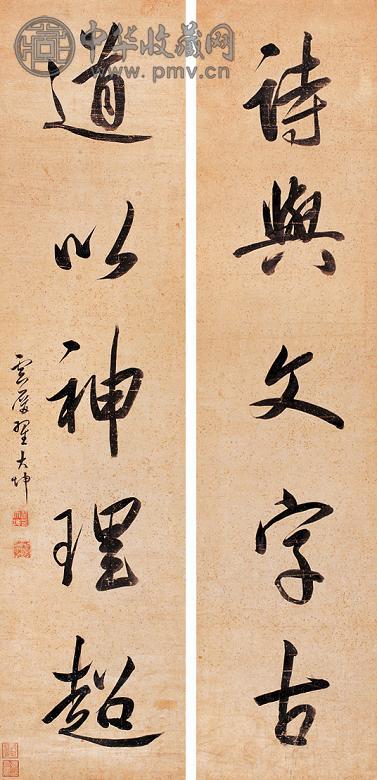 中华收藏网
www.pmv.cn
詩與文字古
道以神理超
雲屏翟大坤